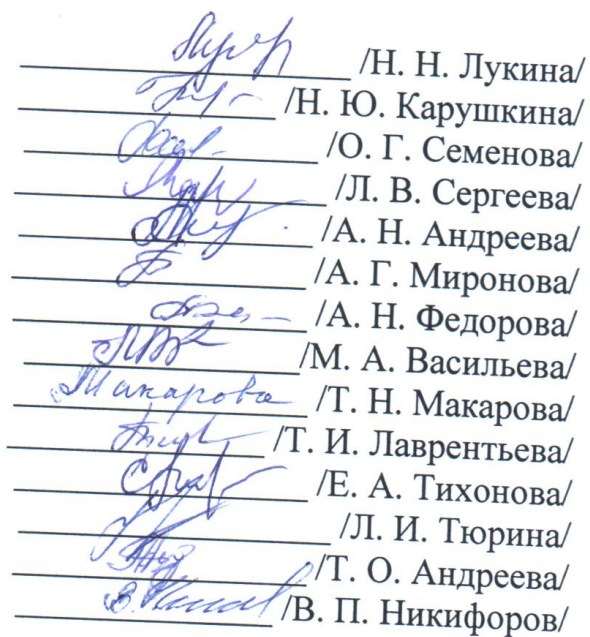 /Н. Н. Лукина/
/Н. Ю. Карушкина/
/О. Г. Семенова/
/Л. В. Сергеева/
/А. Н. Андреева/
/А. Г. Миронова/
/А. Н. Федорова/
/М. А. Васильева/
Макарова /Т. Н. Макарова/
/Т. И. Лаврентьева/
/Е. А. Тихонова/
/Л. И. Тюрина/
/Т. О. Андреева/
/В. П. Никифоров/